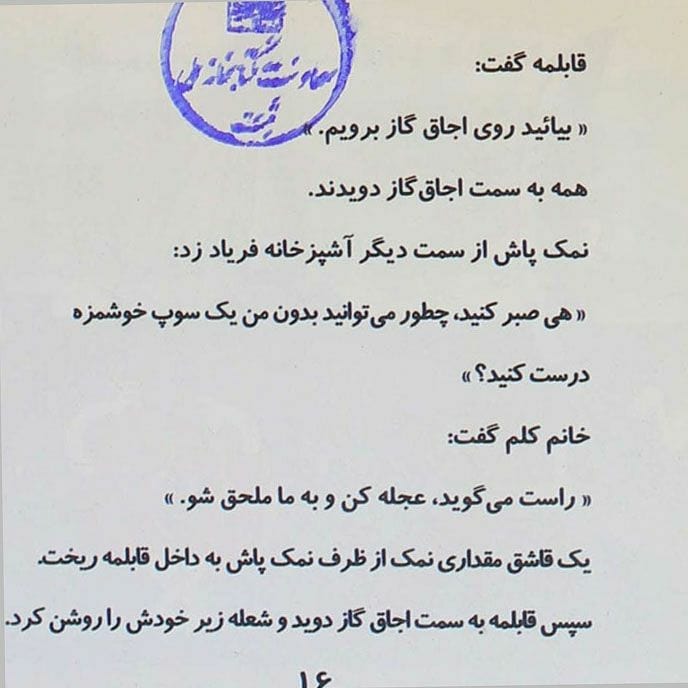 معاونت کتابخانه ملی
ثبت
قابلمه گفت:
« بیائید روی اجاق گاز برویم. »
همه به سمت اجاق‌گاز دویدند.
نمک پاش از سمت دیگر آشپزخانه فریاد زد:
« هی صبر کنید، چطور می‌توانید بدون من یک سوپ خوشمزه
درست کنید؟ »
خانم کلم گفت:
« راست می‌گوید، عجله کن و به ما ملحق شو. »
یک قاشق مقداری نمک از ظرف نمک پاش به داخل قابلمه ریخت.
سپس قابلمه به سمت اجاق گاز دوید و شعله زیر خودش را روشن کرد.
۱۶